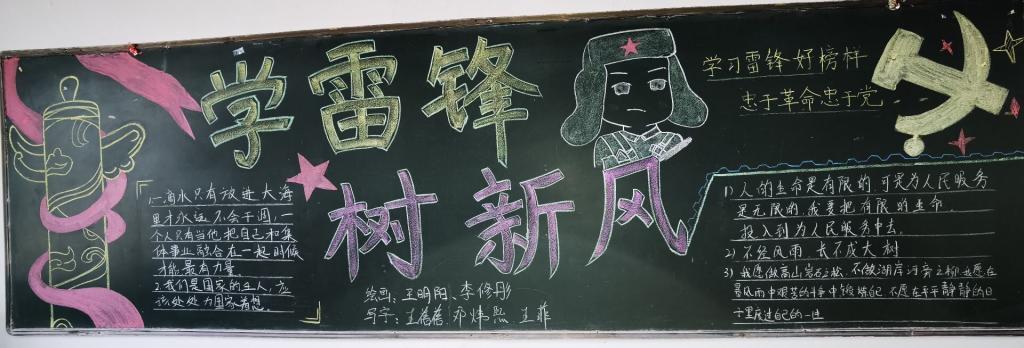 学雷锋
树新风
学习雷锋好榜样
忠于革命忠于党
1、一滴水只有放进大海
里才永远不会干涸,一
个人只有当他把自己和集
体事业融合在一起时候
才能最有力量
2、我们是国家的主人,应
该处处为国家着想
绘画:王明阳、李修彤
写字:王蓓蓓 邓炜熙 王菲
1)人的生命是有限的,可是为人民服务
是无限的,我要把有限的生命,
投入到为人民服务中去。
2)不经风雨 长不成大树
3)我愿做高山岩石之松,不做湖岸河旁之柳,我愿在
暴风雨中艰苦的斗争中锻炼自己,不愿在平平静静的日
子里度过自己的一生